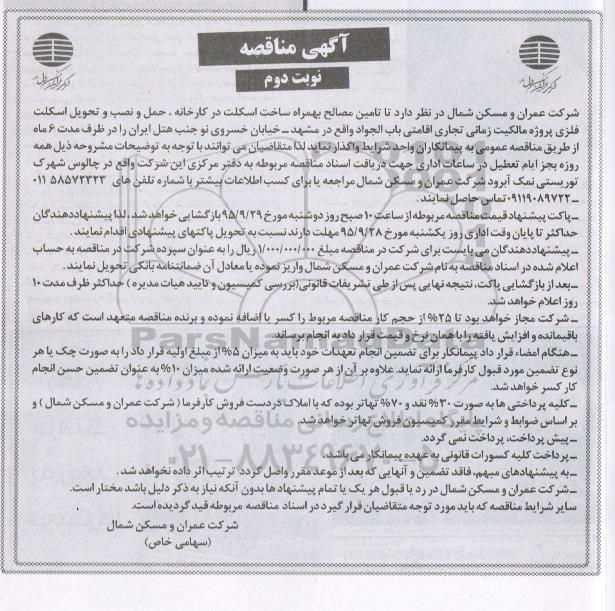 آگهی مناقصه
نوبت دوم
شرکت عمران و مسکن شمال در نظر دارد تا تامین مصالح بهمراه ساخت اسکلت در کارخانه ، حمل و نصب و تحویل اسکلت
فلزی پروژه مالکیت زمانی تجاری اقامتی باب الجواد واقع در مشهد ـ خیابان خسروی نو جنب هتل ایران را در ظرف مدت ۶ ماه
از طریق مناقصه عمومی به پیمانکاران واجد شرایط واگذار نماید لذا متقاضیان می توانند با توجه به توضیحات مشروحه ذیل همه
روزه بجز ایام تعطیل در ساعات اداری جهت دریافت اسناد مناقصه مربوطه به دفتر مرکزی این شرکت واقع در چالوس شهرک
توریستی نمک آبرود شرکت عمران و مسکن شمال مراجعه یا برای کسب اطلاعات بیشتر با شماره تلفن های ۵۸۵۷۲۳۲۳ ۰۱۱
ـ ۰۹۱۱۹۰۸۹۷۲۲ تماس حاصل نمایند.
ـ پاکت پیشنهاد قیمت مناقصه مربوطه از ساعت ۱۰ صبح روز دوشنبه مورخ ۹۵/۹/۲۹ بازگشایی خواهد شد، لذا پیشنهاددهندگان
حداکثر تا پایان وقت اداری روز یکشنبه مورخ ۹۵/۹/۲۸ مهلت دارند نسبت به تحویل پاکتهای پیشنهادی اقدام نمایند.
ـ پیشنهاددهندگان می بایست برای شرکت در مناقصه مبلغ ۱/۰۰۰/۰۰۰/۰۰۰ ریال را به عنوان سپرده شرکت در مناقصه به حساب
اعلام شده در اسناد مناقصه به نام شرکت عمران و مسکن شمال واریز نموده یا معادل آن ضمانتنامه بانکی تحویل نمایند.
ـ بعد از بازگشایی پاکت، نتیجه نهایی پس از طی تشریفات قانونی (بررسی کمیسیون و تایید هیات مدیره ) حداکثر ظرف مدت ۱۰
روز اعلام خواهد شد.
ـ شرکت مجاز خواهد بود تا ۲۵% از حجم کار مناقصه مربوط را کسر یا اضافه نموده و برنده مناقصه متعهد است که کارهای
باقیمانده و افزایش یافته را با همان نرخ و قیمت قرار داد به انجام برساند.
ـ هنگام امضاء قرار داد پیمانکار برای تضمین انجام تعهدات خود باید به میزان ۵% از مبلغ اولیه قرار داد را به صورت چک یا هر
نوع تضمین مورد قبول کارفرما ارائه نماید. علاوه بر آن از هر صورت وضعیت ارائه شده میزان ۱۰% به عنوان تضمین حسن انجام
کار کسر خواهد شد.
ـ کلیه پرداختی ها به صورت ۳۰% نقد و ۷۰% تهاتر بوده که با املاک در دست فروش کارفرما ( شرکت عمران و مسکن شمال ) و
بر اساس ضوابط و شرایط مقرر کمیسیون فروش تهاتر خواهد شد.
ـ پیش پرداخت، پرداخت نمی گردد.
ـ پرداخت کلیه کسورات قانونی به عهده پیمانکار می باشد.
ـ به پیشنهادهای مبهم، فاقد تضمین و آنهایی که بعد از موعد مقرر واصل گردد، ترتیب اثر داده نخواهد شد.
ـ شرکت عمران و مسکن شمال در رد یا قبول هر یک یا تمام پیشنهاد ها بدون آنکه نیاز به ذکر دلیل باشد مختار است.
سایر شرایط مناقصه که باید مورد توجه متقاضیان قرار گیرد در اسناد مناقصه مربوطه قید گردیده است.
شرکت عمران و مسکن شمال
(سهامی خاص)
ParsNamadData
۰۲۱-۸۸۳۴۹۶۷۰-۵